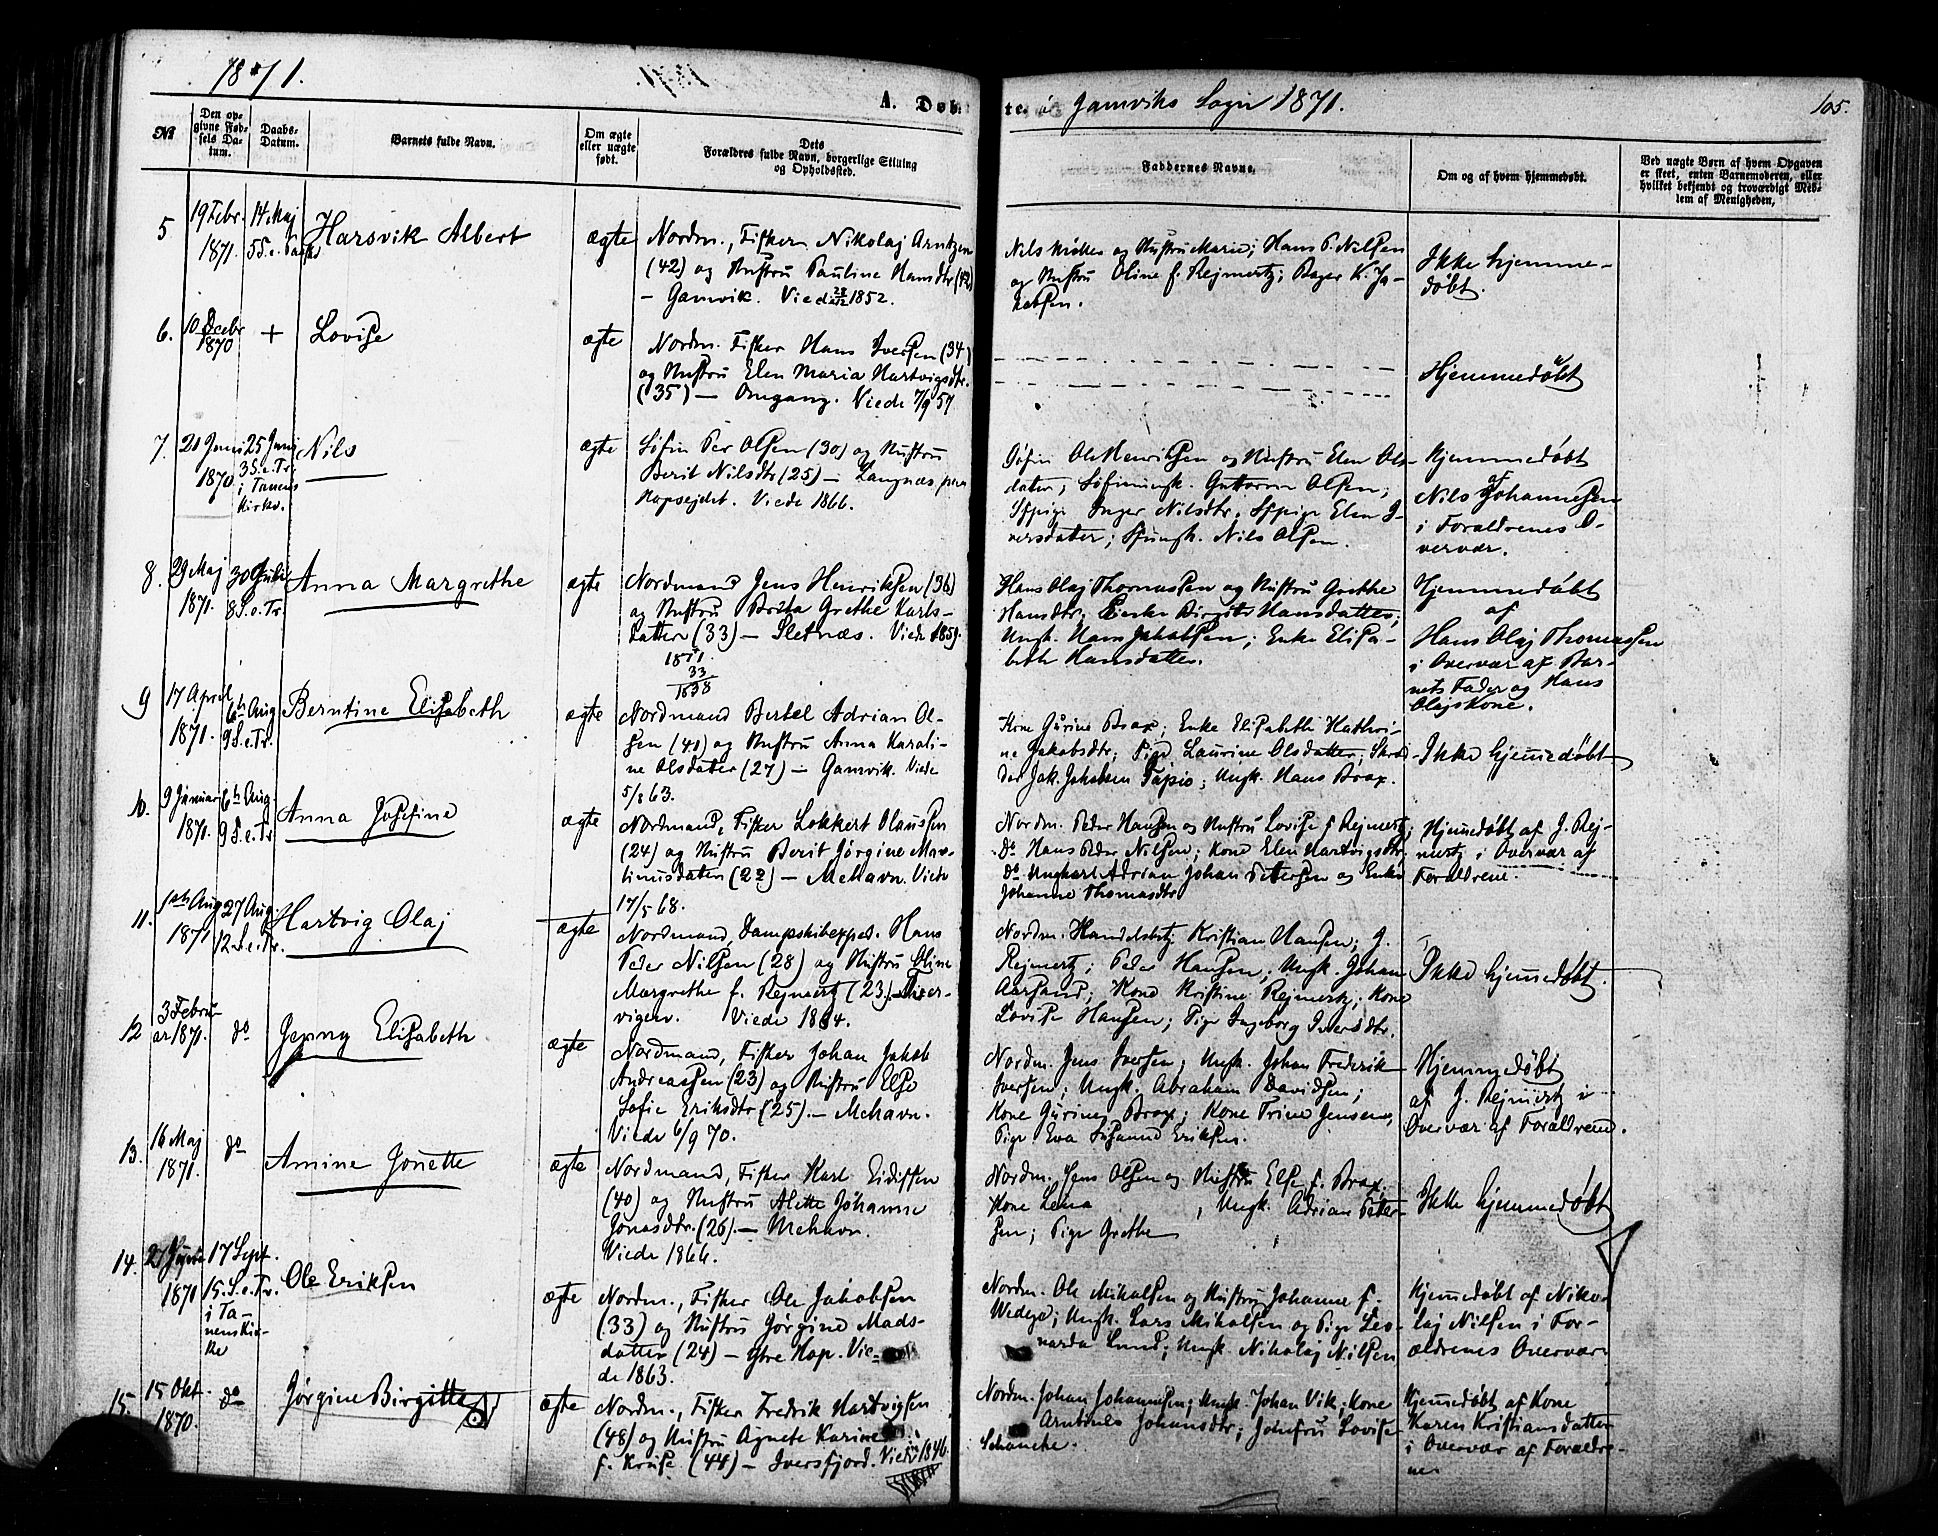 1871.
A. Døb-
te. i Gamviks Sogn 1871.
105.
No
Den op-
givne Fød-
sels Da-
tum.
Daabs-
Datum.
Barnets fulde Navn.
Om ægte
eller uægte
født.
Dets
Forældres fulde Navn, borgerlige Stilling
og Opholdssted.
Faddernes Navne.
Om og af hvem hjemmedøbt.
Ved uægte Børn af hvem Opgaven
er skeet, enten Barnemoderen, eller
hvilket bekjendt og troværdigt Med-
lem af Menigheden.
5.
19 Febr.
1871.
14 Maj
5 S. e. Paaske
Harsvik Albert
ægte
Nordm., Fisker Nikolaj Arntzen
(42) og Hustru Pauline Hansdtr (42)
– Gamvik. Viede 1852.
Nils Møkke og Hustru Marie; Hans P. Nilsen
og Hustru Oline f. Rejmertz; Bager K. Ja-
kobsen.
Ikke hjemme-
døbt.
6.
10 Decbr
1870
+
Lovise
ægte
Nordm. Fisker Hans Iversen (34)
og Hustru Elen Maria Hartvigsdtr.
(35) – Omgang. Viede 7/9 57
Hjemmedøbt
7.
21 Juni
1870
25 Juni
3 S. e. Tr.
i Tanens
Kirke.
Nils
ægte
Søfin Per Olsen (30) og Hustru
Berit Nilsdtr (25) – Langnæs paa
Hopsejdet. Viede 1866.
Søfin Ole Henriksen og Hustru Elen Ols-
datter; Søfinungk. Guttorm Olsen;
Sfpige Inger Nilsdtr; Sfpige Elen I-
versdatter; Sfungk. Nils Olsen.
Hjemmedøbt
af
Nils Johannesen
i Forældrenes O-
vervær.
8.
29 Maj
1871.
30 Juli
8 S. e. Tr.
Anna Margrethe
ægte
Nordmand Jens Henriksen (36)
og Hustru Brita Grethe Karls-
datter (33) – Sletnæs. Viede 1859.
1871
33
1838
Hans Olaj Thomassen og Hustru Grethe
Hansdtr; Enke Birgitte Hansdatter;
Ungk. Hans Jakobsen; Enke Elisa-
beth Hansdatter.
Hjemmedøbt
af
Hans Olaj Thomassen
i Overvær af Bar-
nets Fader og Hans
Olajs Kone.
9
17 April
1871.
6te Aug
9 S. e. Tr.
Berntine Elisabeth
ægte
Nordmand Bertel Adrian Ol-
sen (41) og Hustru Anna Karoli-
ne Olsdatter (27) – Gamvik. Viede
5/8 63.
Kone Gurine Brax; Enke Elisabeth Kathri-
ne Jakobsdtr; Pige Laurine Olsdatter; Skræd-
der Jak. Johnsen Tapio; Ungk. Hans Brax.
Ikke hjemmedøbt
10.
9 Januar
1871.
6te Aug.
9 S. e. Tr.
Anna Josefine
ægte
Nordmand, Fisker Lokkert Olaussen
(24) og Hustru Berit Jørgine Mar-
tinusdatter (22) – Mehavn. Viede
17/5 68.
Nordm. Peder Hansen og Hustru Lovise f. Rejmertz;
Do Hans Peder Nilsen; Kone Elen Hartvigsdtr
Do Ungkarl Adrian Johan Pettersen og Enke
Johanne Thomasdtr
Hjemmedøbt af J. Rej-
mertz i Overvær af
Forældrene.
11.
1ste Aug
1871
27 Aug.
12 S. e. Tr.
Hartvig Olaj
ægte
Nordmand, Dampskibexped. Hans
Peder Nilsen (28) og Hustru Oline
Margrethe f. Rejmertz (23) –
vigen. Viede 1864.
Nordm. Handelsbetj. Kristian Hansen; J.
Rejmertz; Peder Hansen; Ungk. Johan
Aarsand; Kone Kristine Rejmertz; Kone
Lovise Hansen; Pige Ingeborg Iversdtr.
Ikke hjemmedøbt.
12
3 Febru-
ar 1871.
do
Jenny Elisabeth
ægte
Nordmand, Fisker Johan Jakob
Andreassen (23) og Hustru Else
Sofie Eriksdtr (25). – Mehavn.
Viede 6/9 70.
Nordm. Jens Iversen; Ungk. Johan Frederik
Iversen; Ungk. Abraham Davidsen;
Kone Gurine Brax; Kone Trine Jensen,
Pige Eva Susanna Eriksen.
Hjemmedøbt
af J. Rejmertz i
Overvær af Forældrene.
13.
16 Maj
1871.
do
Amine Jonette
ægte
Nordmand, Fisker Karl Eidissen
(40) og Hustru Alette Johanne
Jonasdtr. (26) – Mehavn.
Viede 1866.
Nordm. Jens Olsen og Hustru Else f. Brax;
Kone Lena , Ungk. Adrian Petter-
sen; Pige Grethe
Ikke hjemmedøbt
14.
1870
17 Sept.
15. S. e. Tr.
i Ta-
nens Kir-
ke
Ole Eriksen
ægte
Nordm., Fisker Ole Jakobsen
(33) og Hustru Jørgine Mads-
datter (24) – Ytre Hop. Vie-
de 1863.
Nordm. Ole Mikalsen og Hustru Johanne f.
Wedege; Ungk. Lars Mikalsen og Pige Leo-
narda Lund; Ungk. Nikolaj Nilsen
Hjemmedøbt af Niko-
laj Nilsen i For-
ældrenes Overvær
15.
15 Okt.
1870.
do
Jørgine Birgitte
ægte
Nordm., Fisker Fredrik Hartvigsen
(48) og Hustru Agnete Karine
f. Kruse (44) – Iversfjord. Viede 1846.
Nordm. Johan Johannesen; Ungk. Johan Vik; Kone
Arntine Johansdtr; Jomfru Lovise
Schanche.
Hjemmedøbt af Kone
Karen Kristiansdatter
i Overvær af Forældre-
ne